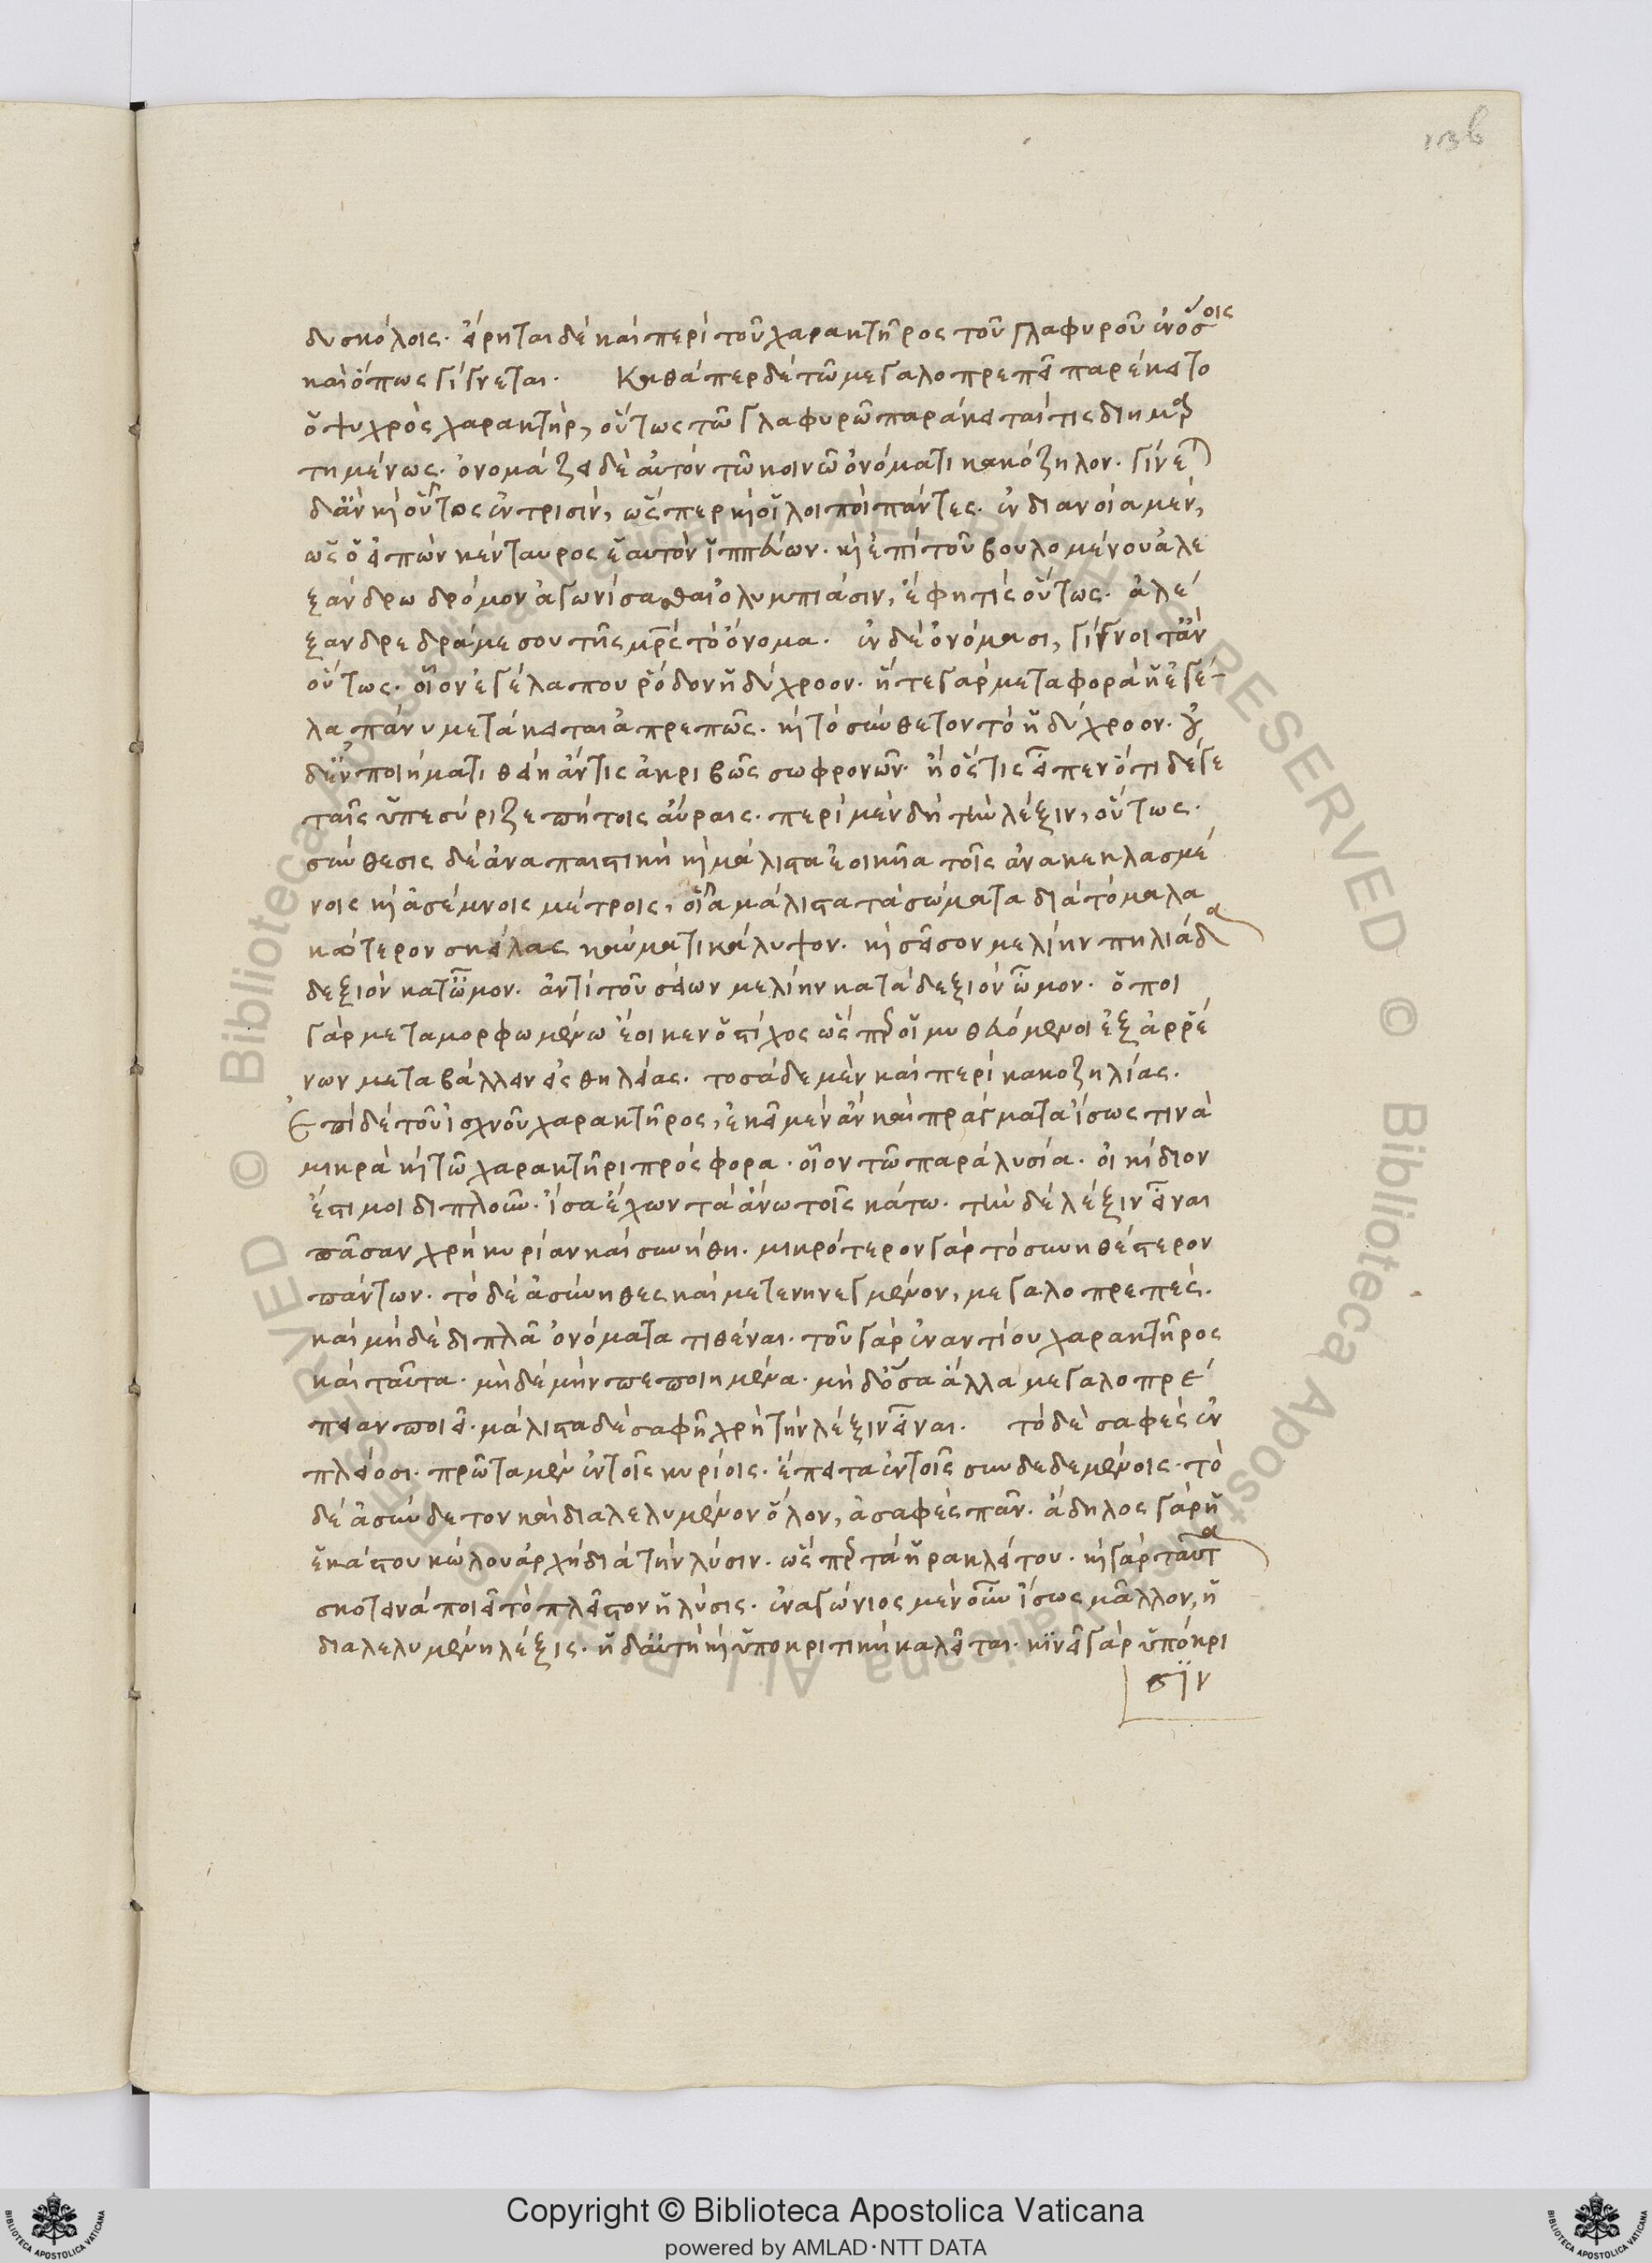 136
δυσκόλοις. εἴρηται δὲ καὶ περὶ τοῦ χαρακτῆρος τοῦ γλαφυροῦ ἐν ὅσοις
καὶ ὅπως γίγνεται. Καθάπερ δὲ τῶ μεγαλοπρεπεῖ παρέκειτο
ὁ ψυχρὸς χαρακτὴρ, οὕτως τῶ γλαφυρῶ παράκειταί τις διημαρ
τημένως. ὀνομάζει δὲ αὐτὸν τῶ κοινῶ ὀνόματι κακόζηλον. γίνεται
δ' ἂν κὶ οὗτος ἐν τρισὶν, ὥσπερ κὶ οἱ λοιποὶ πάντες. ἐν διανοία μὲν,
ὡς ὁ εἰπὼν κένταυρος ἑαυτὸν ἱππεύων. κὶ ἐπὶ τοῦ βουλομένου ἀλε
ξάνδρω δρόμον ἀγωνίσασθαι ὀλυμπιάσιν, ἔφη τὶς οὕτως. ἀλέ
ξανδρε δράμε σου τῆς μρς τὸ ὄνομα. ἐν δὲ ὀνόμασι, γίγνοιτ' ἂν
οὕτως. οἷον ἐγέλα που ῥόδον ἡδύχροον. ἥ τε γὰρ μεταφορὰ ἡ ἐγέ-
λα πάνυ μετάκειται ἀπρεπῶς. κὶ τὸ σύνθετον τὸ ἡδύχροον. οὐ
δ' ἐν ποιήματι θείη ἄν τις ἀκριβῶς σωφρονῶν. ἢ ὥς τις εἶπεν ὅτι δέγε
ταῖς ὑπεσύριζε πήτοις αὔραις. περὶ μὲν δὴ τὴν λέξιν, οὕτως.
σύνθεσις δὲ ἀναπαιστικὴ κὶ μάλιστα ἐοικῆα τοῖς ἀνακεκλασμέ
νοις κὶ ἀσέμνοις μέτροις, οἷα μάλιστα τὰ σώματα διὰ τὸ μαλα
κώτερον σκείλας καύματι κάλυψον. κὶ σεῖσον μελίην πηλιάδα
δεξιὸν κατ' ὦμον. ἀντὶ τοῦ σείων μελίην κατὰ δεξιὸν ὦμον. ὁποῖ
γὰρ μεταμορφωμένω ἔοικεν ὁ στίχος ὥσπερ οἱ μυθευόμενοι ἐξ ἀρρέ
νων μεταβάλλειν εἰς θηλείας. τοσάδε μὲν καὶ περὶ κακοζηλίας.
Ἐπὶ δὲ τοῦ ἰσχνοῦ χαρακτῆρος, ἐκεῖ μὲν ἂν καὶ πράγματα ἴσως τινὰ
μικρὰ κὶ τῶ χαρακτῆρι πρόσφορα. οἷον τῶ παρὰ λυσία. οἰκίδιον
ἔστι μοι διπλοῦν. ἴσα ἔχων τὰ ἄνω τοῖς κάτω. τὴν δὲ λέξιν εἶναι
πᾶσαν χρὴ κυρίαν καὶ συνήθη. μικρότερον γὰρ τὸ συνηθέστερον
πάντων. τὸ δὲ ἀσύνηθες καὶ μετενηνεγμένον, μεγαλοπρεπές.
καὶ μηδὲ διπλᾶ ὀνόματα τιθέναι. τοῦ γὰρ ἐναντίου χαρακτῆρος
καὶ ταῦτα. μηδὲ μὴν πεποιημένα. μὴ δ' ὅσα ἄλλα μεγαλοπρέ
πειαν ποιεῖ. μάλιστα δὲ σαφῆ χρὴ τὴν λέξιν εἶναι. τὸ δὲ σαφὲς ἐν
πλείοσι. πρῶτα μὲν ἐν τοῖς κυρίοις. ἔπειτα ἐν τοῖς συνδεδεμένοις. τὸ
δὲ ἀσύνδετον καὶ διαλελυμένον ὅλον, ἀσαφὲς πᾶν. ἄδηλος γὰρ ἡ
ἑκάστου κώλου ἀρχὴ διὰ τὴν λύσιν. ὥσπερ τὰ ἡρακλείτου. κὶ γὰρ ταῦτα
σκοτεινὰ ποιεῖ τὸ πλεῖστον ἡ λύσις. ἐναγώνιος μὲν οὖν ἴσως μᾶλλον, ἡ
διαλελυμένη λέξις. ἡ δ' αὐτὴ κὶ ὑποκριτικὴ καλεῖται. κινεῖ γὰρ ὑπόκρι
σϊν
Copyright © Biblioteca Apostolica Vaticana
powered by AMLAD·NTT DATA